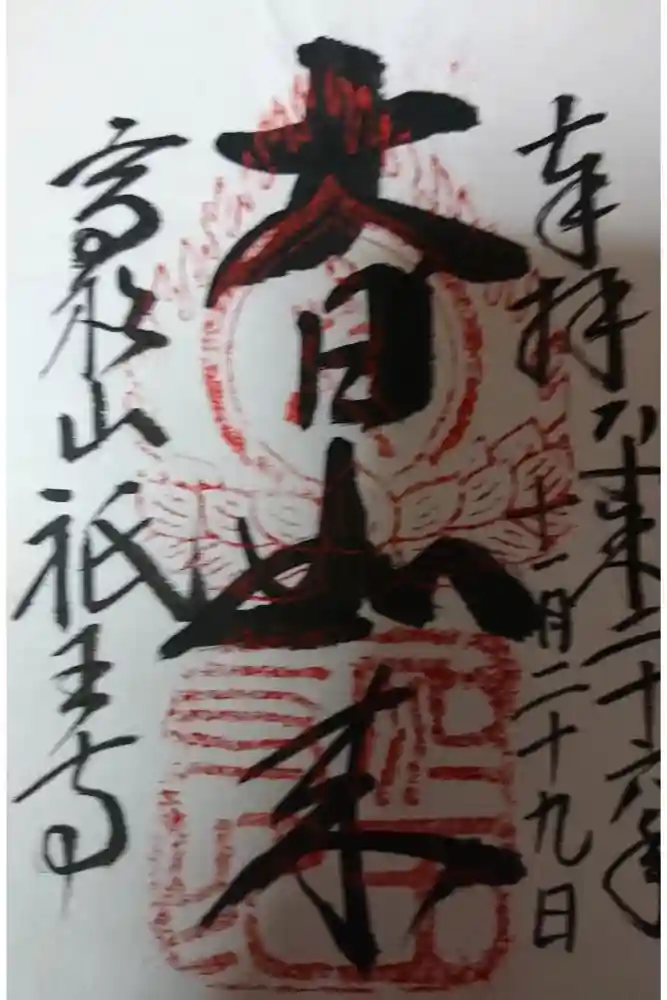 奉拝
平成二十六年
十一月二十九日
大日如来
高松山 祇王寺